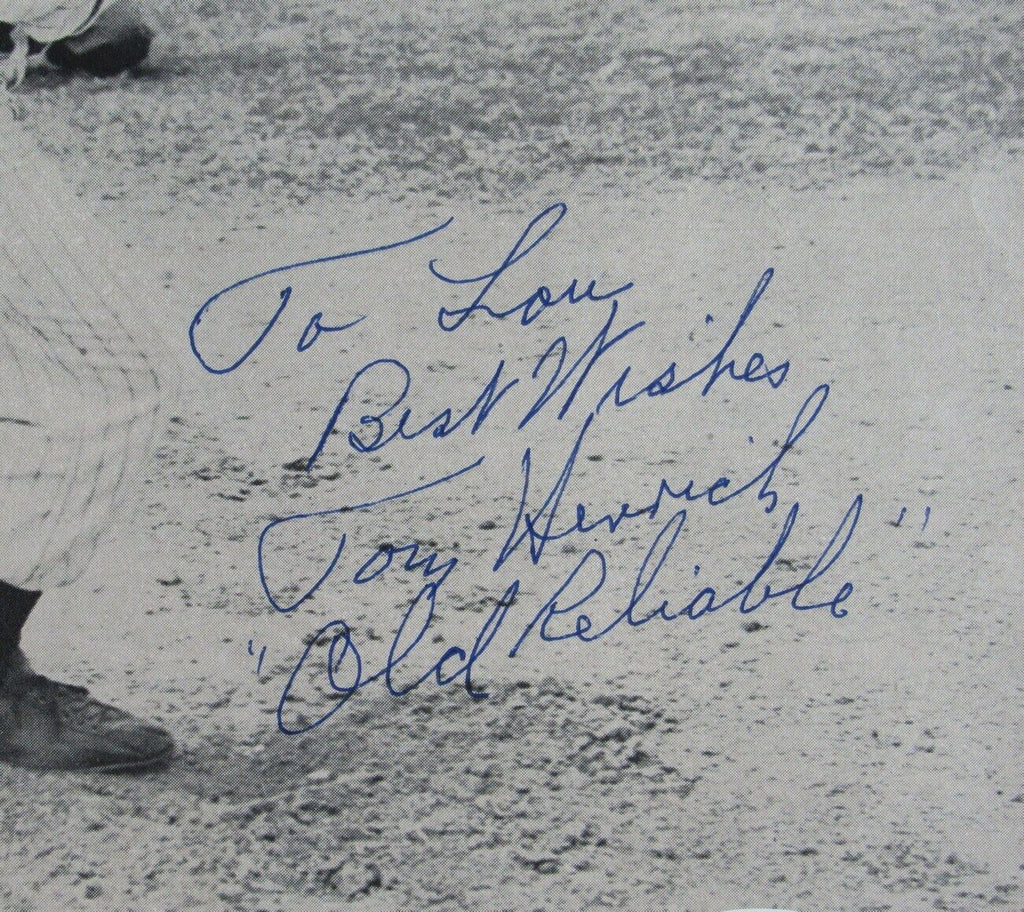 To Lou
Best Wishes
Tom Henrich
"Old Reliable"